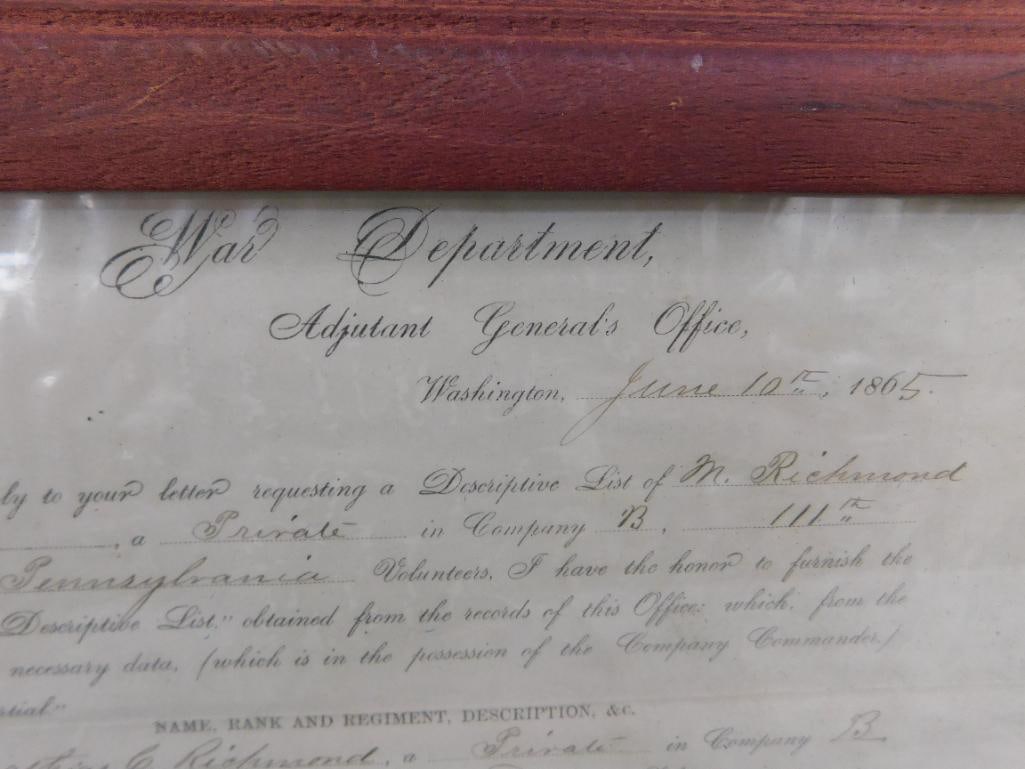 War Department,
Adjutant General's Office,
Washington, June 10th, 1865.
ly to your letter requesting a Descriptive List of M. Richmond
, a Private in Company B, 111th
Pennsylvania Volunteers, I have the honor to furnish the
Descriptive List," obtained from the records of this Office: which, from the
necessary data, (which is in the possession of the Company Commander,)
rtial."
NAME, RANK AND REGIMENT, DESCRIPTION, &c.
C. Richmond, a Private in Company B